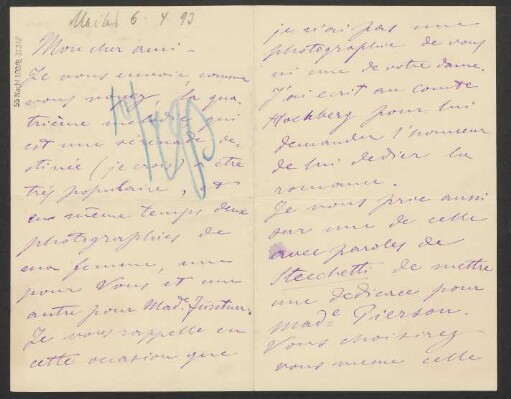 6. 4 93
Mon cher ami -
Je vous envoie, comme
vous voyez, la qua-
trième mélodie qui
est une sérénade de-
stinée (je crois) a être
très populaire, et
en même temps deux
photographies de
ma femme, une
pour Vous et une
autre pour Made
Je vous rappelle en
cette occasion que
je n'ai pas une
photographie de vous
ni une de votre dame.
J'ai ecrit au comte
Hochberg pour lui
demander l'honneur
de lui dedier la
romance.
Je vous prie aussi
sur une de celle
avec paroles de
Stecchetti de mettre
une dedicace pour
Made Pierson.
Vous choisirez
vous meme celle